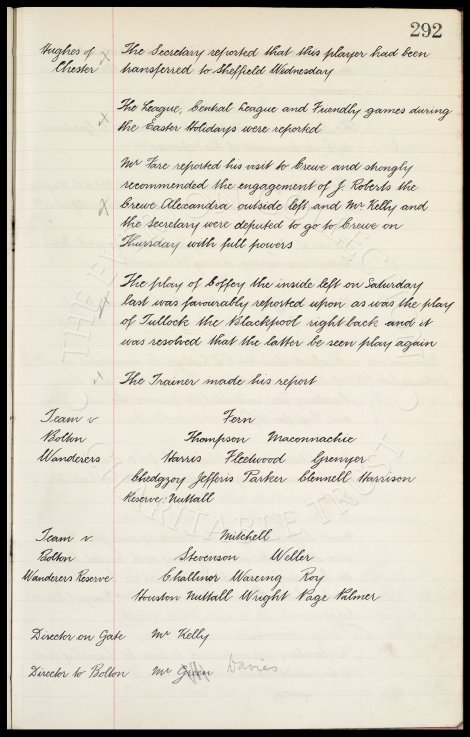 292
Hughes of x The Secretary reported that this player had been
Chester transferred to Sheffield Wednesday
x The League, Central League and Friendly games during
the Easter Holidays were reported
Mr Fare reported his visit to Crewe and strongly
recommended the engagement of J. Roberts the
x Crewe Alexandra outside left and Mr Kelly and
the Secretary were deputed to go to Crewe on
Thursday with full powers
The play of Coffey the inside left on Saturday
x last was favourably reported upon as was the play
of Tullock the Blackpool right back and it
was resolved that the latter be seen play again
x The Trainer made his report
Team v Fern
Bolton Thompson Maconnachie
Wanderers Harris Fleetwood Grenyer
Chedgzoy Jefferis Parker Clennell Harrison
Reserve: Nuttall
Team v Mitchell
Bolton Stevenson Weller
Wanderers Reserve Challinor Wareing Roy
Houston Nuttall Wright Page Palmer
Director on Gate Mr Kelly
Director to Bolton Mr Green Davies